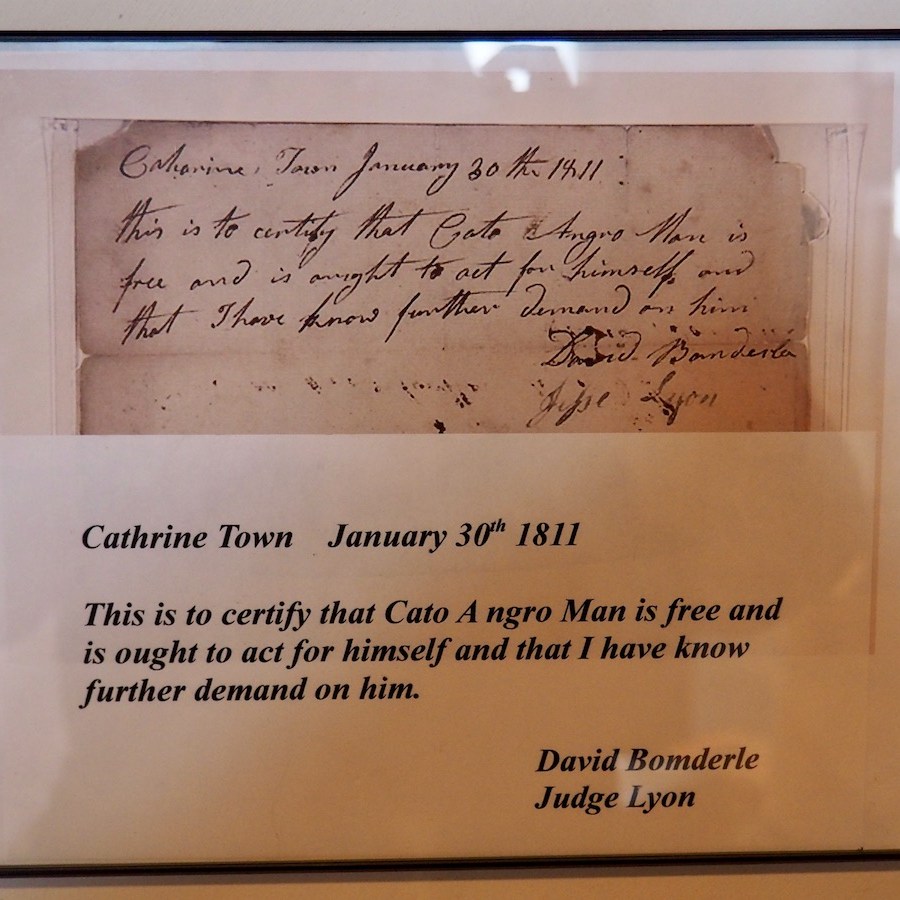 Catharine Town January 30th 1811
this is to certify that Cato Angro Man is
free and is ought to act for himself and
that I have know further demand on him
David Bomderle
Lyon
Cathrine Town January 30th 1811
This is to certify that Cato A ngro Man is free and
is ought to act for himself and that I have know
further demand on him.
David Bomderle
Judge Lyon